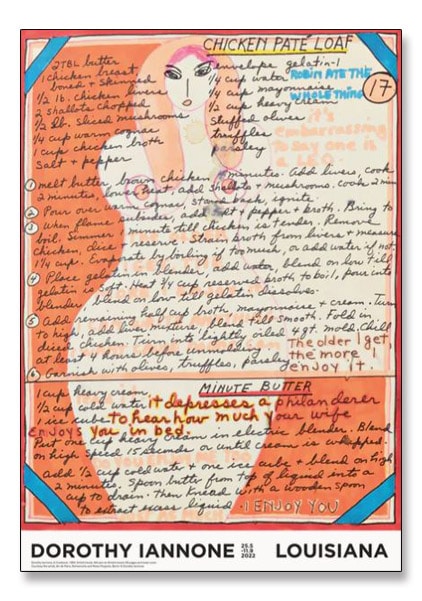 CHICKEN PATÉ LOAF
2 TBL butter
1 chicken breast,
boned + skinned
1/2 lb. chicken livers
2 shallots chopped
1/2 lb. sliced mushrooms
1/4 cup warm cognac
1 cup chicken broth
salt + pepper
1 envelope gelatin-1
1/4 cup water
1/4 cup mayonnaise
1/2 cup heavy cream
stuffed olives
truffles
parsley
ROBIN ATE THE
WHOLE THING
17
it's
embarrassing
to say one is
a LEO
1 melt butter, brown chicken minutes. Add livers, cook
2 minutes, lower heat, add shallots + mushrooms. cook 2 min
2 Pour over warm cognac, stand back, ignite.
3 When flame subsides, add salt + pepper + broth. Bring to
boil. Simmer minute till chicken is tender. Remove
chicken, dice reserve. Strain broth from livers + measure
1 1/4 cup. Evaporate by boiling if too much, or add water if not.
4 Place gelatin in blender, add water, blend on low till
gelatin is soft. Heat 3/4 cup reserved broth to boil, pour into
blender blend on low till gelatin dissolves.
5 Add remaining half cup broth, mayonnaise + cream. Turn
to high, add liver mixture, blend till smooth. Fold in
diced chicken. Turn into lightly oiled 4 qt. mold. Chill
at least 4 hours before unmolding
6 Garnish with olives, truffles, parsley
The older I get,
the more I
enjoy it.
MINUTE BUTTER
1 cup heavy cream
1/2 cup cold water
1 ice cube
it depresses a philanderer
to hear how much your wife
enjoys you in bed.
Put one cup heavy cream in electric blender. Blend
on high speed 15 seconds or until cream is whipped.
add 1/2 cup cold water + one ice cube + blend on high
2 minutes. Spoon butter from top of liquid into a
cup to drain. then knead with a wooden spoon
to extract excess liquid
I ENJOY YOU
DOROTHY IANNONE 25.5 -11.9 2022 LOUISIANA